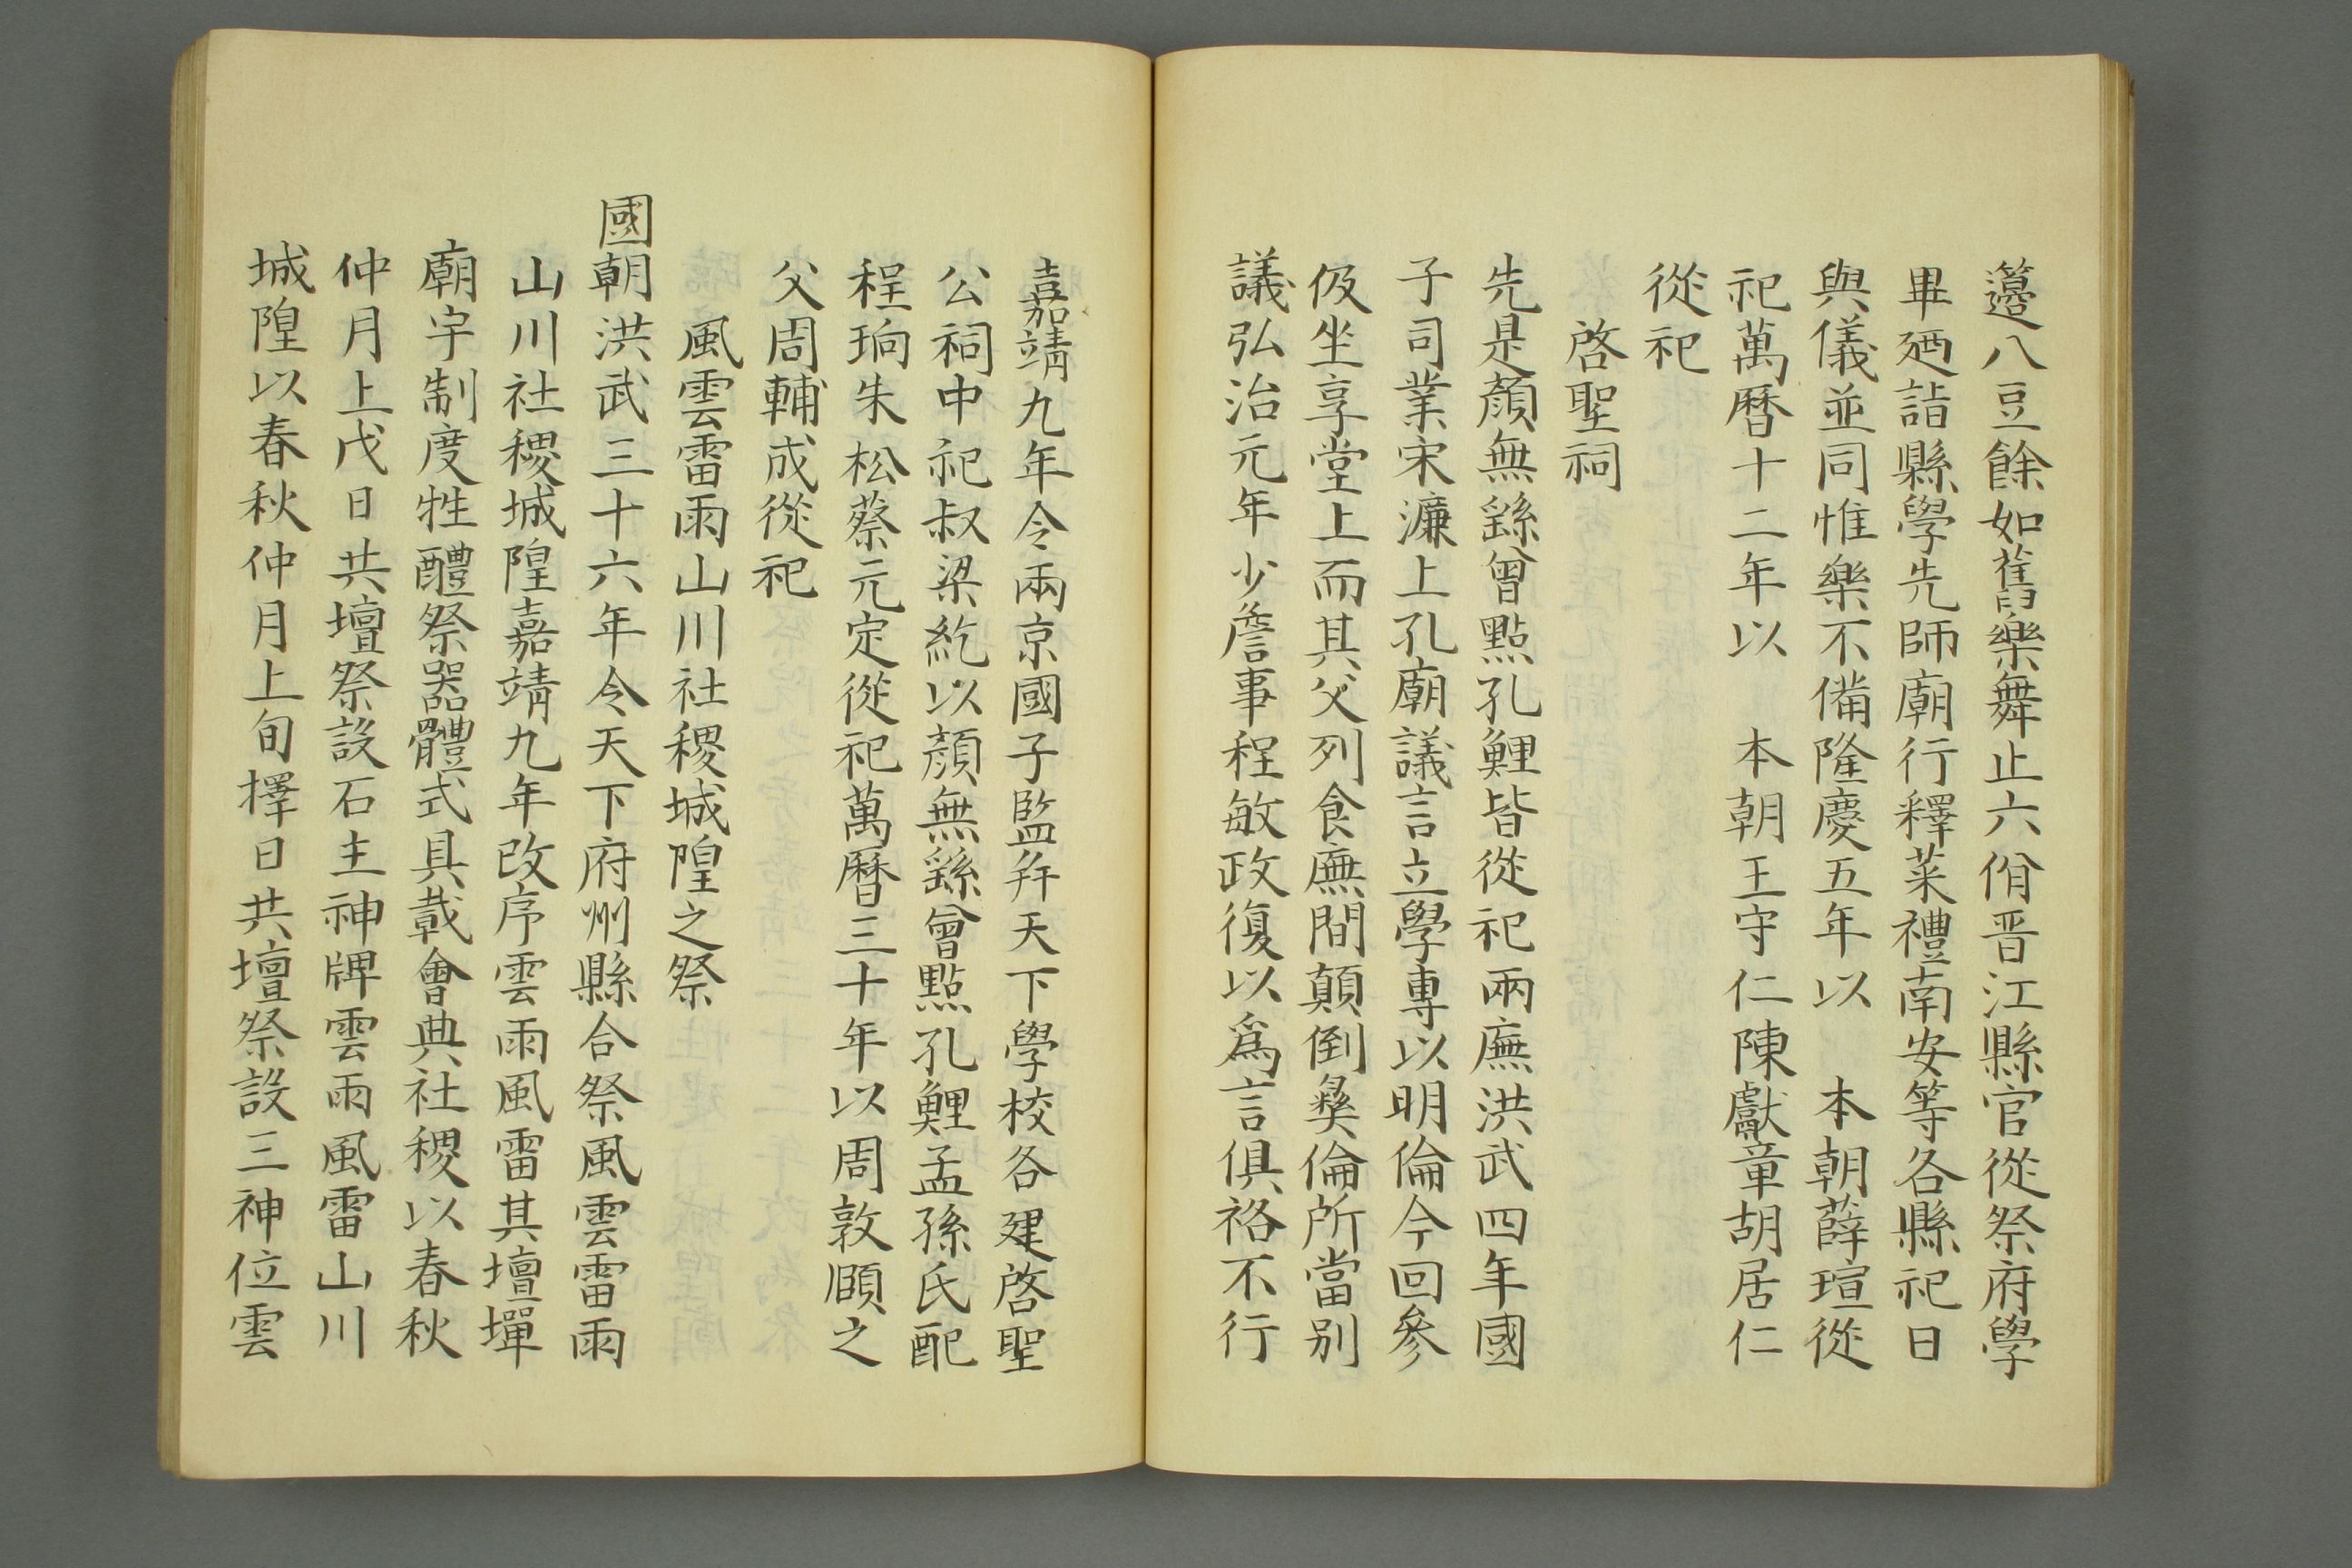 籩八豆餘如舊樂舞止六佾晋江縣官從祭府學
畢廼詣縣學先師廟行釋菜禮南安等各縣祀日
與儀並同惟樂不備隆慶五年以　本朝薛瑄從
祀萬曆十二年以　本朝王守仁陳獻章胡居仁
從祀
啓聖祠
先是顏無繇曾點孔鯉皆從祀兩廡洪武四年國
子司業宋濂上孔廟議言立學專以明倫今回參
伋坐享堂上而其父列食廡間顛倒彝倫所當别
議弘治元年少詹事程敏政復以爲言俱格不行
嘉靖九年令兩京國子監并天下學校各建啓聖
公祠中祀叔梁紇以顏無繇曾點孔鯉孟孫氏配
程珦朱松蔡元定從祀萬曆三十年以周敦頤之
父周輔成從祀
風雲雷雨山川社稷城隍之祭
國朝洪武三十六年令天下府州縣合祭風雲雷雨
山川社稷城隍嘉靖九年改序雲雨風雷其壇墠
廟宇制度牲醴祭器體式具載會典社稷以春秋
仲月上戊日共壇祭設石主神牌雲雨風雷山川
城隍以春秋仲月上旬擇日共壇祭設三神位雲